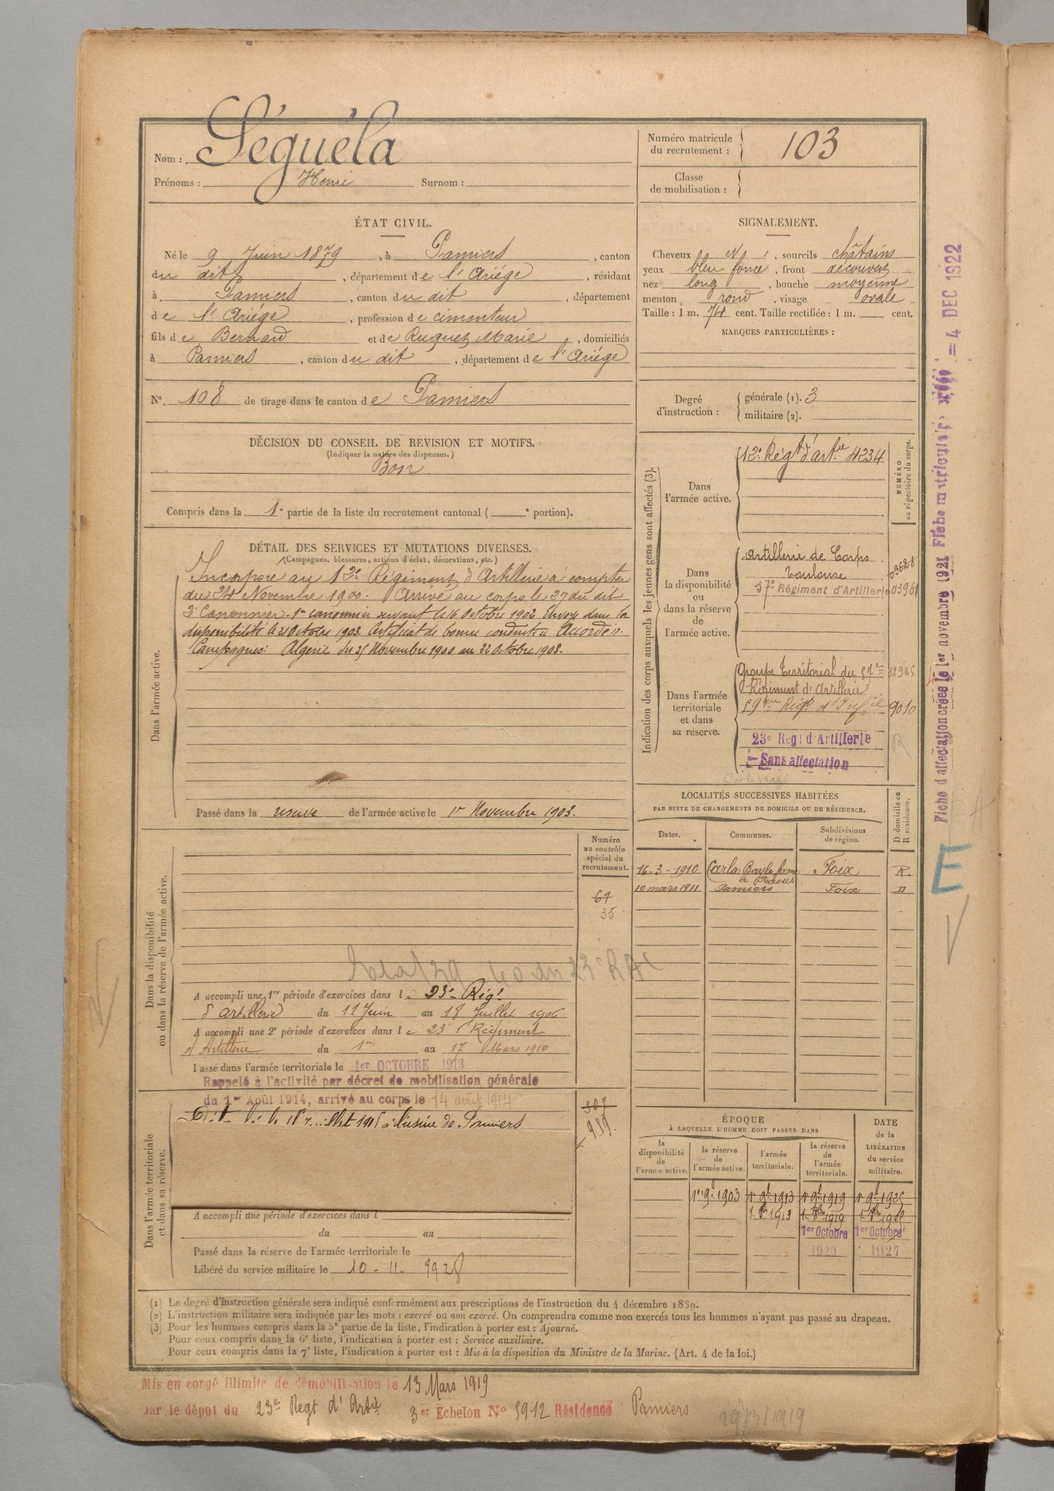 Nom : Séguéla
Prénoms : Henri Surnom :
Numéro matricule du recrutement : 103
Classe de mobilisation :
ÉTAT CIVIL.
Né le 9 Juin 1879, à Pamiers, canton
du dit, département de l'Ariège, résidant
à Pamiers, canton du dit, département
de l'Ariège, profession de cimenteur
fils de Bernard et de Ruquet Marie, domiciliés
à Pamiers, canton du dit, département de l'Ariège
N° 108 de tirage dans le canton de Pamiers
SIGNALEMENT.
Cheveux N, sourcils châtains
yeux bleu foncé, front découvert
nez long, bouche moyenne
menton rond, visage ovale
Taille : 1 m. cent. Taille rectifiée : 1 m. cent.
MARQUES PARTICULIÈRES :
Degré d'instruction : générale (1). 3
militaire (2).
DÉCISION DU CONSEIL DE REVISION ET MOTIFS.
(Indiquer la nature des dispenses.)
Bon
Compris dans la 1e partie de la liste du recrutement cantonal ( e portion).
DÉTAIL DES SERVICES ET MUTATIONS DIVERSES.
(Campagnes, blessures, actions d'éclat, décorations, etc.)
Dans l'armée active.
Incorporé au 12e Régiment d'Artillerie à compter
du 24 Novembre 1900. Arrivé au corps le 27 du dit
2e Canonnier. 1er canonnier servant le 16 Octobre 1902 Envoyé dans la
disponibilité le Octobre 1903. Certificat de bonne conduite Accordé.
Campagnes : Algérie du 25 Novembre 1900 au 22 Octobre 1903.
Passé dans la réserve de l'armée active le 1er Novembre 1903.
Indication des corps auxquels les jeunes gens sont affectés (3).
NUMÉRO au répertoire du corps.
Dans l'armée active.
12e Régt d'artie 4234
Dans la disponibilité ou dans la réserve de l'armée active.
Artillerie de Corps
Toulouse
57e Régiment d'Artillerie
Dans l'armée territoriale et dans sa réserve.
Groupe Territorial du 57e
Régiment d'Artillerie
59ème Régt d'Infie 9010
23e Regt d'Artillerie
Sans affectation
LOCALITÉS SUCCESSIVES HABITÉES
PAR SUITE DE CHANGEMENTS DE DOMICILE OU DE RÉSIDENCE.
Dates. Communes. Subdivisions de région. D domicile ou R résidence.
16-3-1910 Carla Bayle Foix R.
10 mars 1911 Pamiers Foix D
Dans la disponibilité ou dans la réserve de l'armée active.
Numéro au contrôle spécial du recrutement.
67
35
A accompli une 1re période d'exercices dans le 23e Régt
d'artillerie du 11 Juin au 18 Juillet 1906
A accompli une 2e période d'exercices dans le 23e Régiment
d'Artillerie du 1er au 17 Mars 1910
Passé dans l'armée territoriale le 1er OCTOBRE 1913
Rappelé à l'activité par décret de mobilisation générale
du 1er Août 1914, arrivé au corps le 14 août 1914
Dans l'armée territoriale et dans sa réserve.
307
939
1915 à l'usine de Pamiers
A accompli une période d'exercices dans l
du au
Passé dans la réserve de l'armée territoriale le
Libéré du service militaire le 10-11-1928
ÉPOQUE
À LAQUELLE L'HOMME DOIT PASSER DANS
la disponibilité de l'armée active. la réserve de l'armée active. l'armée territoriale. la réserve de l'armée territoriale. DATE de la LIBÉRATION du service militaire.
1er 9bre 1903 1er 9bre 1913 1er 9bre 1919 1er 9bre 1925
1er Octobre 1er Octobre
1927
(1) Le degré d'instruction générale sera indiqué conformément aux prescriptions de l'instruction du 4 décembre 1889.
(2) L'instruction militaire sera indiquée par les mots : exercé ou non exercé. On comprendra comme non exercés tous les hommes n'ayant pas passé au drapeau.
(3) Pour les hommes compris dans la 5e partie de la liste, l'indication à porter est : Ajourné.
Pour ceux compris dans la 6e liste, l'indication à porter est : Service auxiliaire.
Pour ceux compris dans la 7e liste, l'indication à porter est : Mis à la disposition du Ministre de la Marine. (Art. 4 de la loi.)
Mis en congé illimité de démobilisation le 13 Mars 1919
par le dépôt du 23e Regt d'Artie 3er Echelon N° 5912 Résidence Pamiers
Fiche d'affectation créée le 1er novembre 1921 Fiche matricule = 4 DEC 1922
E